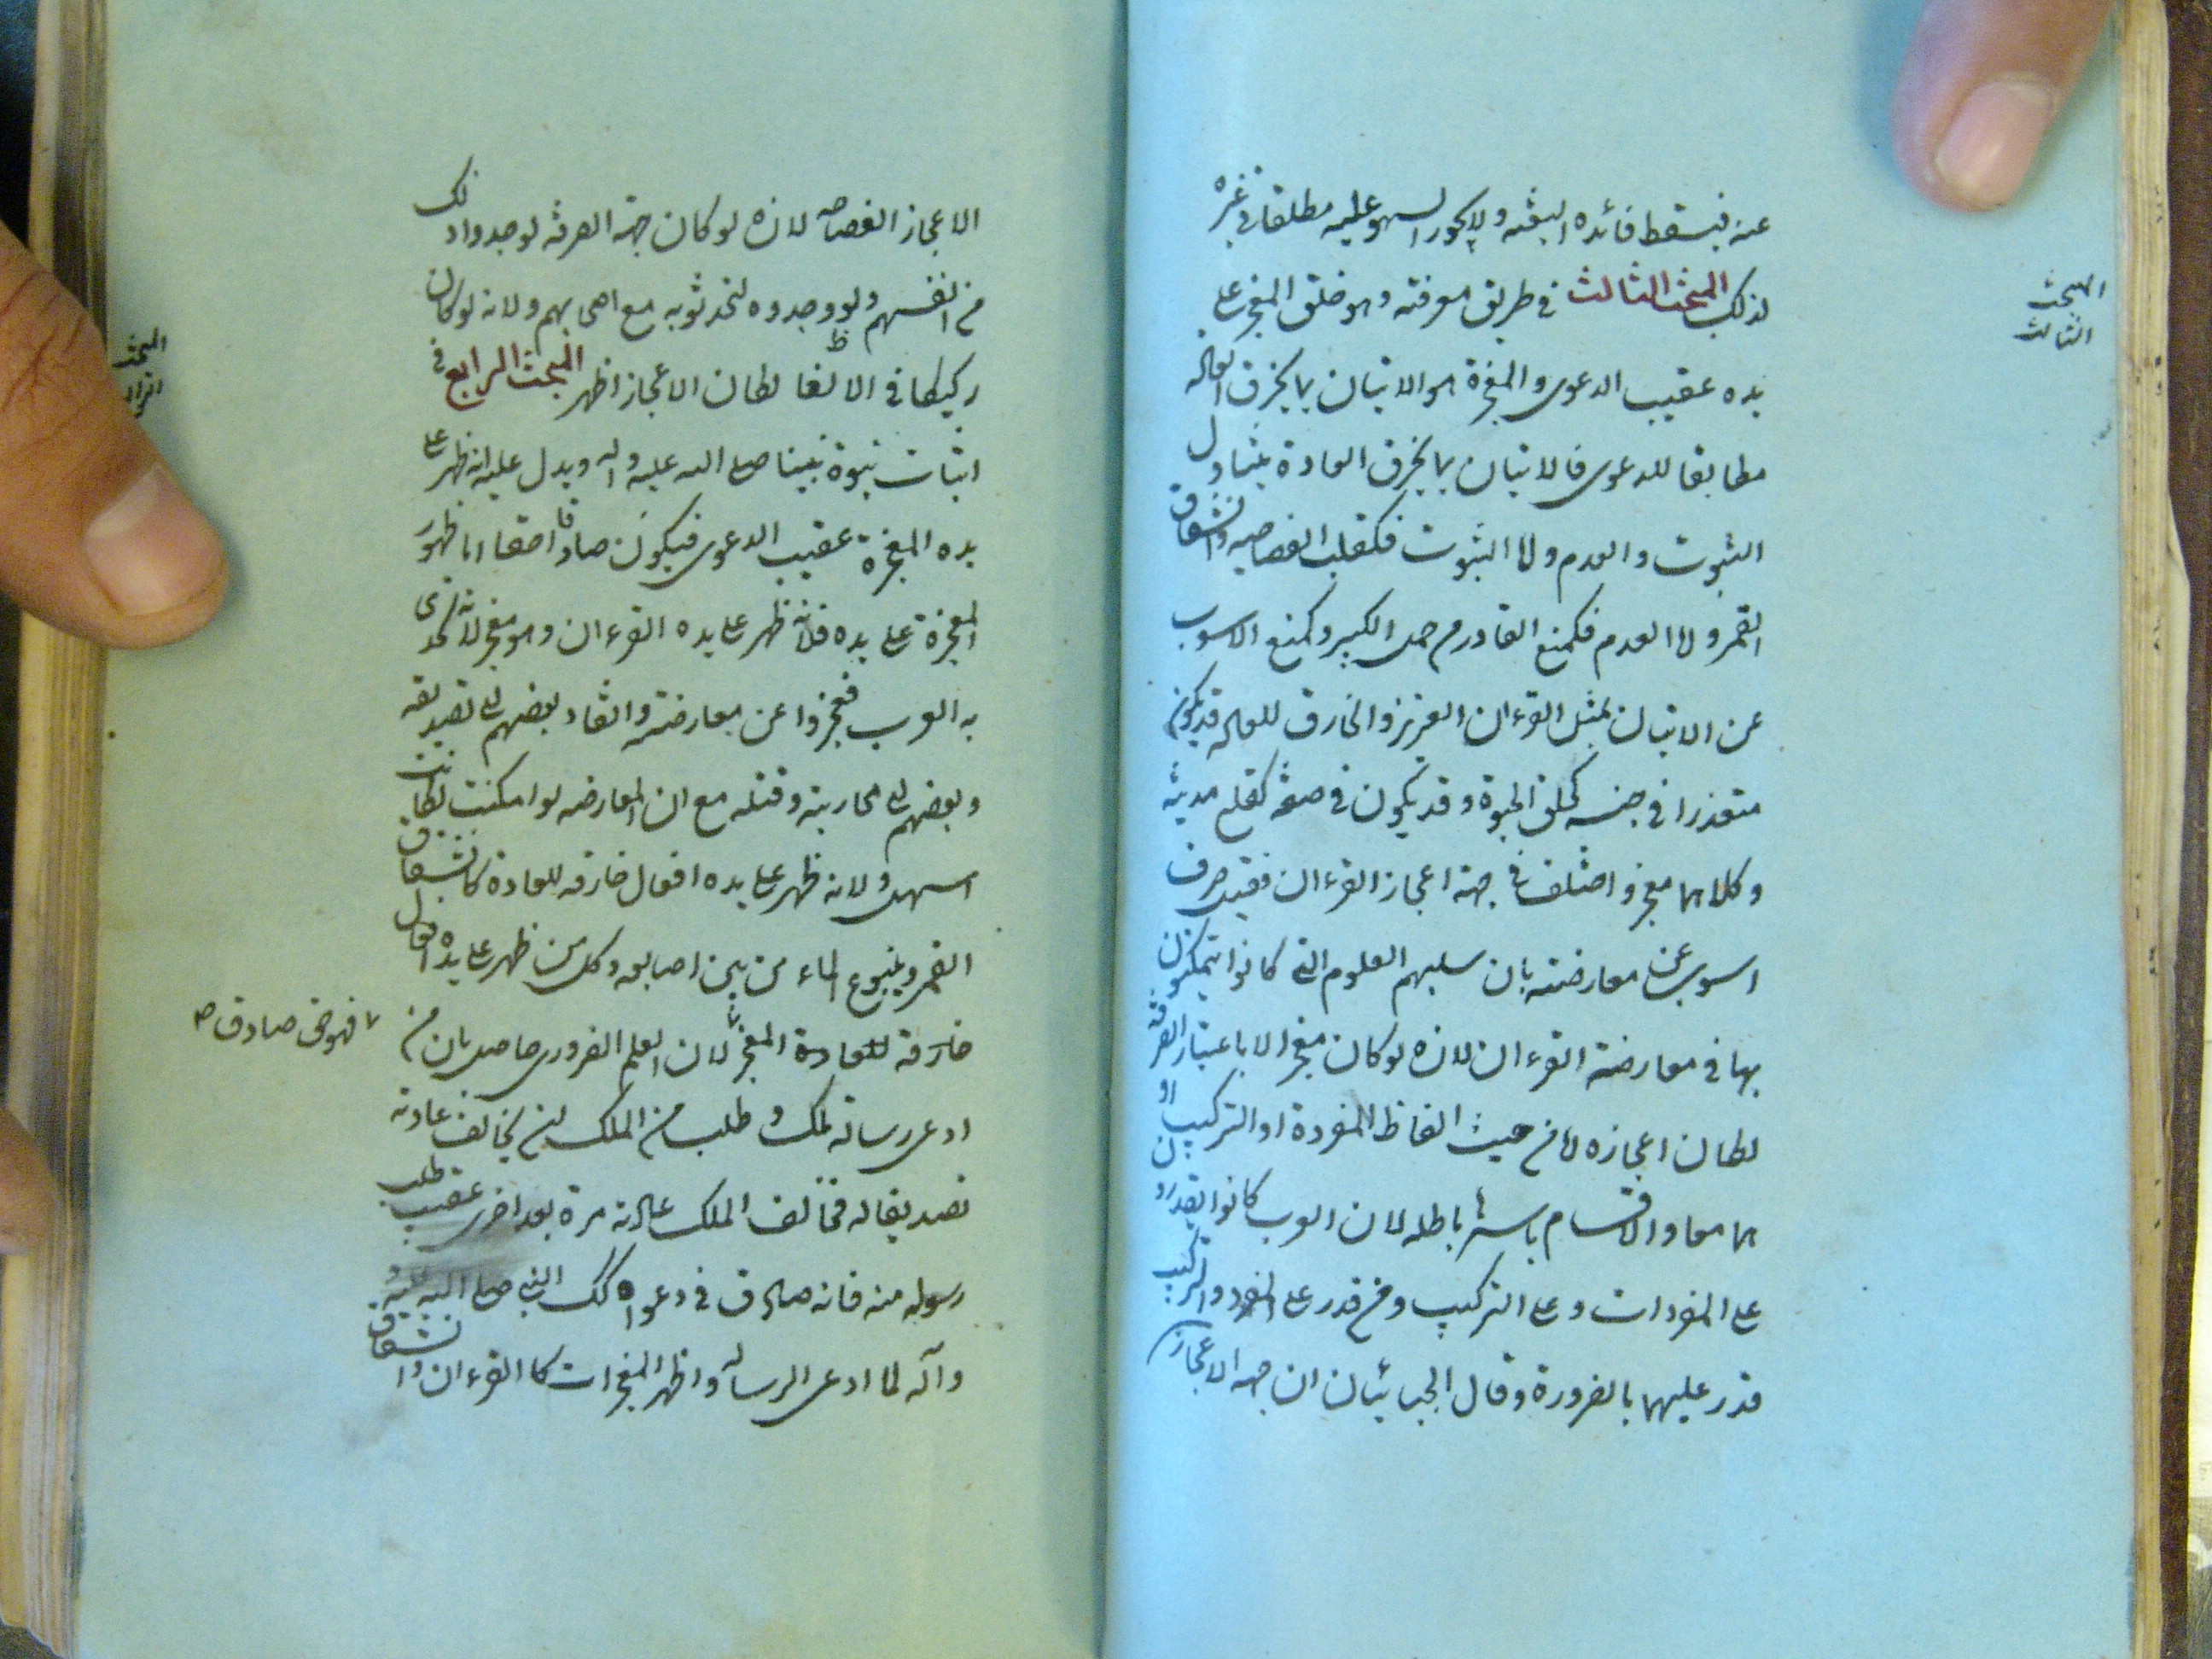 عنه فيسقط فائده البعثه و لايجوز السهو عليه مطلقا فى غيره
لذلك المبحث الثالث فى طريق معرفته وهو خلق المعجز على
يده عقيب الدعوى والمعجزة هو الاتيان بما يخرق العاده
مطابقا للدعوى فالاتيان بما يخرق العادة يتناول
الثبوت والعدم ولا الثبوت فكقلب العصا حيه وانشقاق
القمر ولا العدم فكمنع القادر من حمل الكثير وكمنع العرب
عن الاتيان بمثل القرءان العزيز والخارق للعاده قد يكون
متعذرا فى جنسه كخلق الحيوة وقد يكون فى صفته كقلع مدينه
وكلاهما معجز واختلف فى جهة اعجاز القرءان فقيل صرف
العرب عن معارضته بان سلبهم العلوم التى كانوا يتمكنون
بها فى معارضة القرءان لانه لو كان معجزا لا باعتبار الصرفه
لكان اعجازه اما من حيث الفاظ المفردة او التركيب او
هما معا والاقسام باسرها باطله لان العرب كانوا يقدرون
على المفردات وعلى التركيب ومن قدر على المفرد والتركيب
قدر عليهما بالضرورة وقال الجبائيان ان جهه الاعجاز
المبحث
الثالث
الاعجاز الفصاحه لانه لو كان جهة الصرفه لوجدوا ذلك
من انفسهم ولو وجدوه لتحدثوا به مع اصحابهم ولانه لو كان
ركيكا فى الالفاظ لكان الاعجاز اظهر المبحث الرابع فى
اثبات نبوة نبينا صلى الله عليه واله ويدل عليه انه ظهر على
يده المعجزة عقيب الدعوى فيكون صادقا حقا اما ظهور
المعجزة على يده فلانه ظهر على يده القرءان وهو معجز لانه تحدى
به العرب فعجزوا عن معارضته وانقاد بعضهم الى تصديقه
وبعضهم الى محاربته وقتله مع ان المعارضه لو امكنت لكانت
اسهل ولانه ظهر على يده افعال خارقه للعادة كانشقاق
القمر وينبوع الماء من بين اصابعه وكل من ظهر على يده افعال
خارقة للعادة المعجز لان العلم الضرورى حاصل بان من
ادعى رسالة ملك وطلب من الملك ان يخالف عادته
تصديقا له فخالف الملك عادته مرة بعد اخرى عقيب طلب
رسوله منه فانه صادق فى دعواه كك النبى صلى الله عليه و
وآله لما ادعى الرسالة واظهر المعجزات كالقرءان وانشقاق
المبحث
فهو حق صادق صح